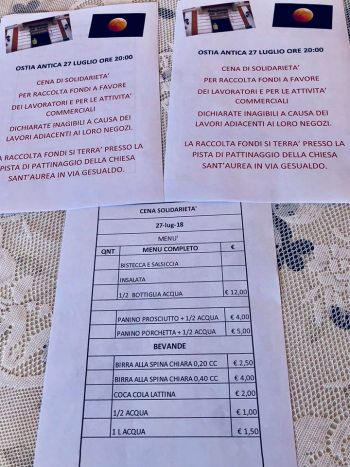 OSTIA ANTICA 27 LUGLIO ORE 20:00
CENA DI SOLIDARIETA'
PER RACCOLTA FONDI A FAVORE
DEI LAVORATORI E PER LE ATTIVITA'
COMMERCIALI
DICHIARATE INAGIBILI A CAUSA DEI
LAVORI ADIACENTI AI LORO NEGOZI.
LA RACCOLTA FONDI SI TERRA' PRESSO LA
PISTA DI PATTINAGGIO DELLA CHIESA
SANT'AUREA IN VIA GESUALDO.
OSTIA ANTICA 27 LUGLIO ORE 20:00
CENA DI SOLIDARIETA'
PER RACCOLTA FONDI A FAVORE
DEI LAVORATORI E PER LE ATTIVITA'
COMMERCIALI
DICHIARATE INAGIBILI A CAUSA DEI
LAVORI ADIACENTI AI LORO NEGOZI.
LA RACCOLTA FONDI SI TERRA' PRESSO LA
PISTA DI PATTINAGGIO DELLA CHIESA
SANT'AUREA IN VIA GESUALDO.
CENA SOLIDARIETA'
27-lug-18
MENU'
QNT MENU COMPLETO €
BISTECCA E SALSICCIA
INSALATA
1/2 BOTTIGLIA ACQUA € 12,00
PANINO PROSCIUTTO + 1/2 ACQUA € 4,00
PANINO PORCHETTA + 1/2 ACQUA € 5,00
BEVANDE
BIRRA ALLA SPINA CHIARA 0,20 CC € 2,50
BIRRA ALLA SPINA CHIARA 0,40 CC € 4,00
COCA COLA LATTINA € 2,00
1/2 ACQUA € 1,00
1 L ACQUA € 1,50